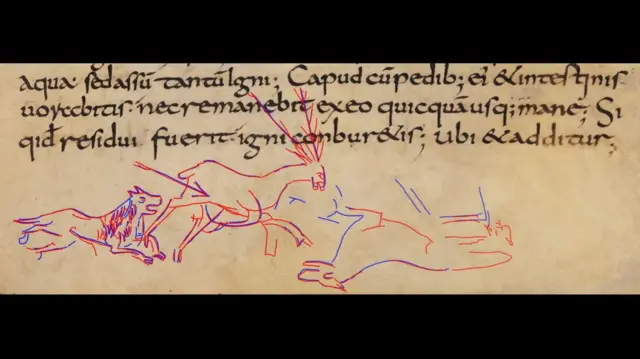 aquæ sedassũ tantũ Igni; Capud cũ pedib; ei & intestinis
uorabitis nec remanebit ex eo quicquã usq; mane; Si
qid residui fuerit igni conbur&is; Ubi & additur;